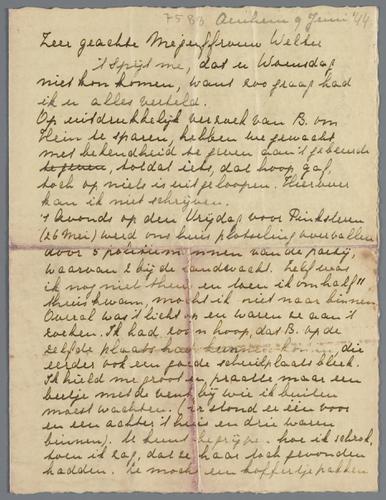 7580 Arnhem 9 Juni '44
Zeer geachte Mejuffrouw Welter
't Spijt me, dat u Woensdag
niet kon komen, want zoo graag had
ik u alles verteld.
Op uitdrukkelijk verzoek van B. om
Hein te sparen, hebben we gewacht
met bekendheid te geven aan't gebeurde
te geven, totdat iets, dat hoop gaf,
toch op niets is uitgeloopen. Hierover
kan ik niet schrijven.
's Avonds op den Vrijdag voor Pinksteren
(26 Mei) werd ons huis plotseling overvallen
door 5 politiemannen van de partij,
waarvan 2 bij de Landwacht. Zelf was
ik nog niet thuis en toen ik om half 11
thuiskwam, mocht ik niet naar binnen
Overal was't licht op en waren ze aan't
zoeken. Ik had zoo'n hoop, dat B. op de
zelfde plaats die
eerder ook een goede schuilplaats bleek.
Ik hield me groot en praatte maar een
beetje met de vent, bij wie ik buiten
moest wachten. (Er stond er één voor
en een achter 't huis en drie waren
binnen). U kunt begrijpen hoe ik schrok,
toen ik zag, dat ze haar toch gevonden
hadden. Ze moch een koffertje pakken